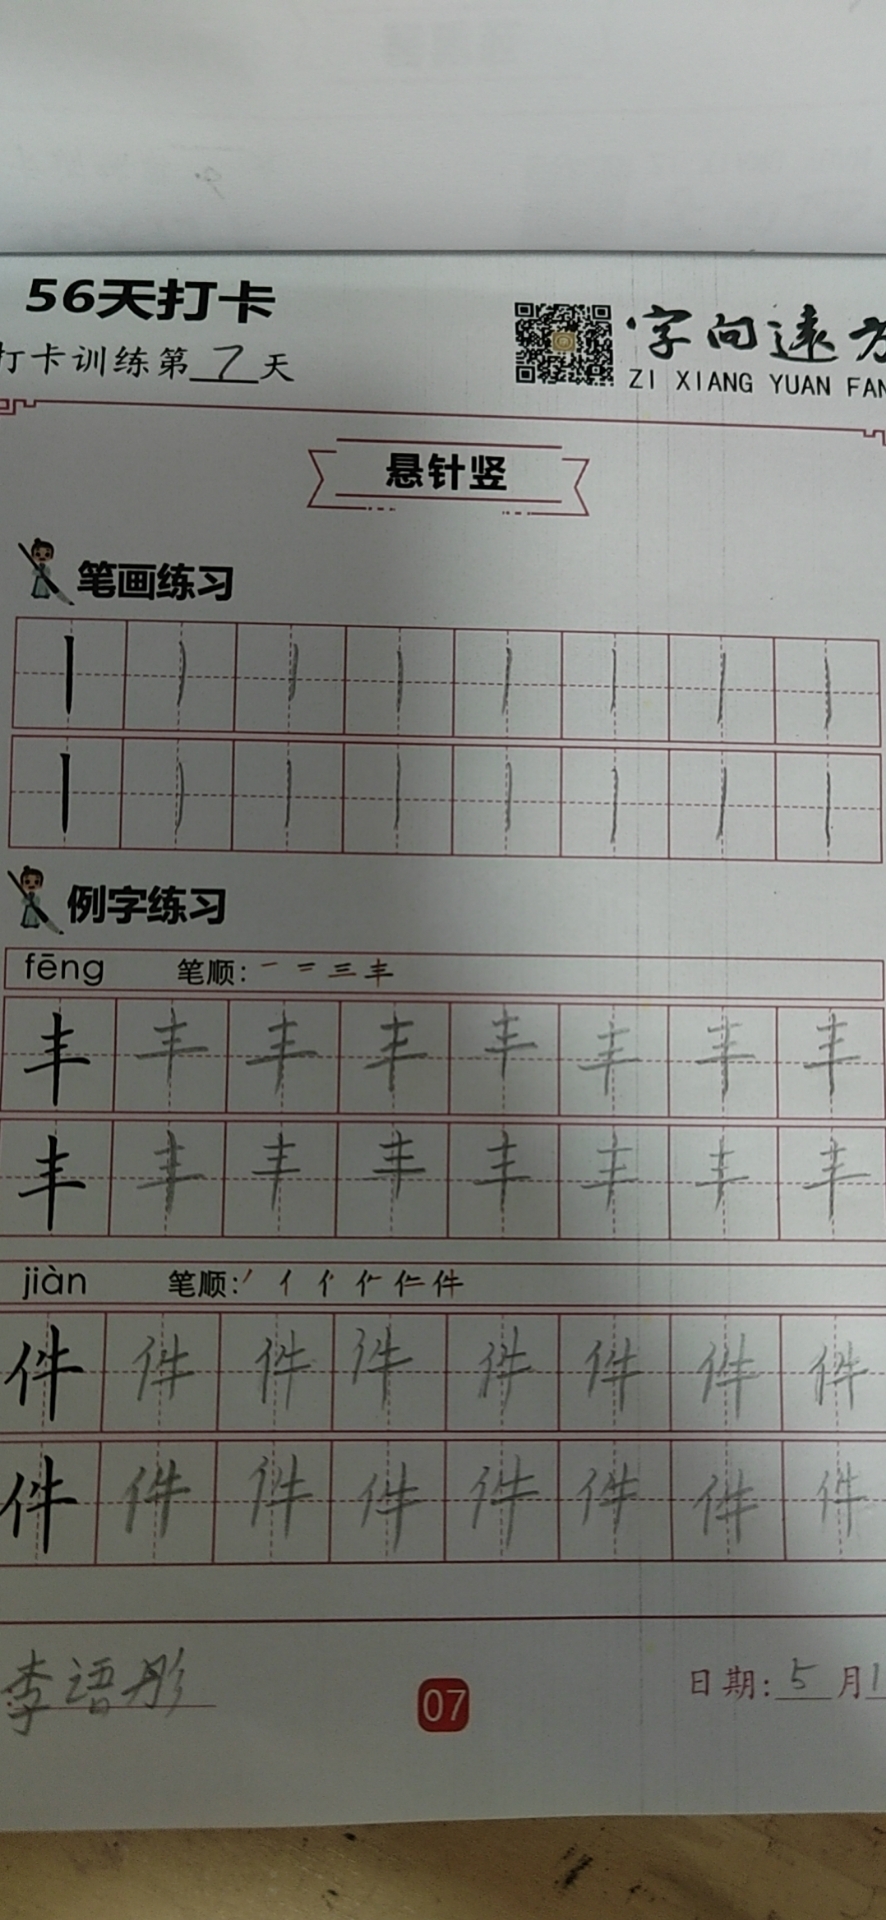 56天打卡
打卡训练第7天
字向远方
ZI XIANG YUAN FAN
悬针竖
笔画练习
例字练习
fēng 笔顺: 一 二 三 丰
丰 丰 丰 丰 丰 丰 丰 丰
丰 丰 丰 丰 丰 丰 丰 丰
jiàn 笔顺:
件 件 件 件 件 件 件 件
件 件 件 件 件 件 件 件
李语彤
07
日期: 5 月1